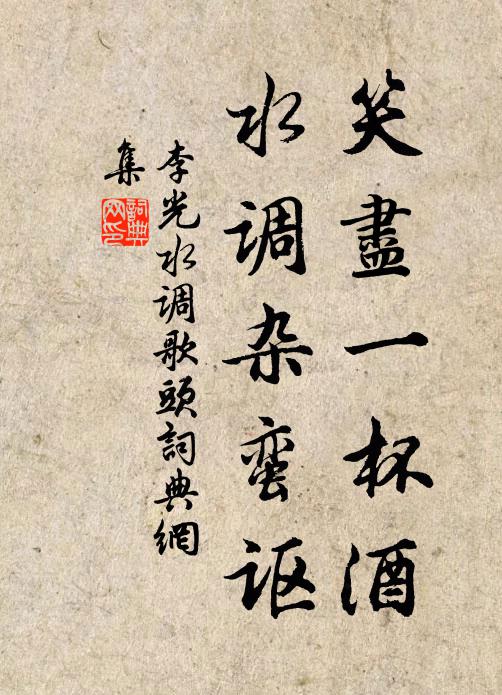 笑盡一杯酒
水调杂蛮讴
李光水调歌頭詞典網
集
詞典
网印